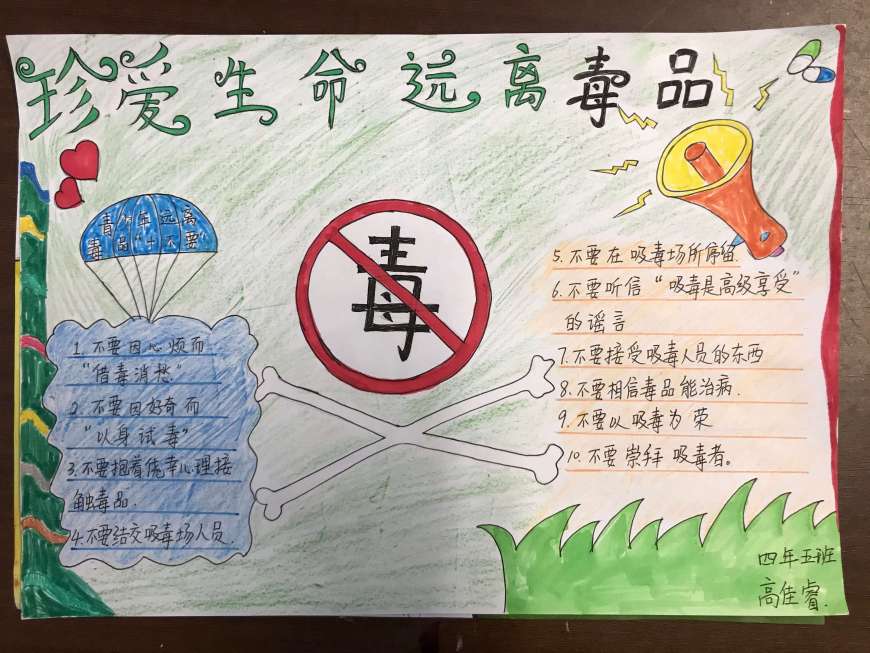 珍爱生命远离毒品
青少年远离
毒品"十不要"
1.不要因心烦而
"借毒消愁"
2.不要因好奇而
"以身试毒"
3.不要抱着侥幸心理接
触毒品.
4.不要结交吸毒场人员.
毒
5.不要在吸毒场所停留.
6.不要听信"吸毒是高级享受"
的谣言
7.不要接受吸毒人员的东西
8.不要相信毒品能治病.
9.不要以吸毒为荣
10.不要崇拜吸毒者。
四年五班
高佳睿.